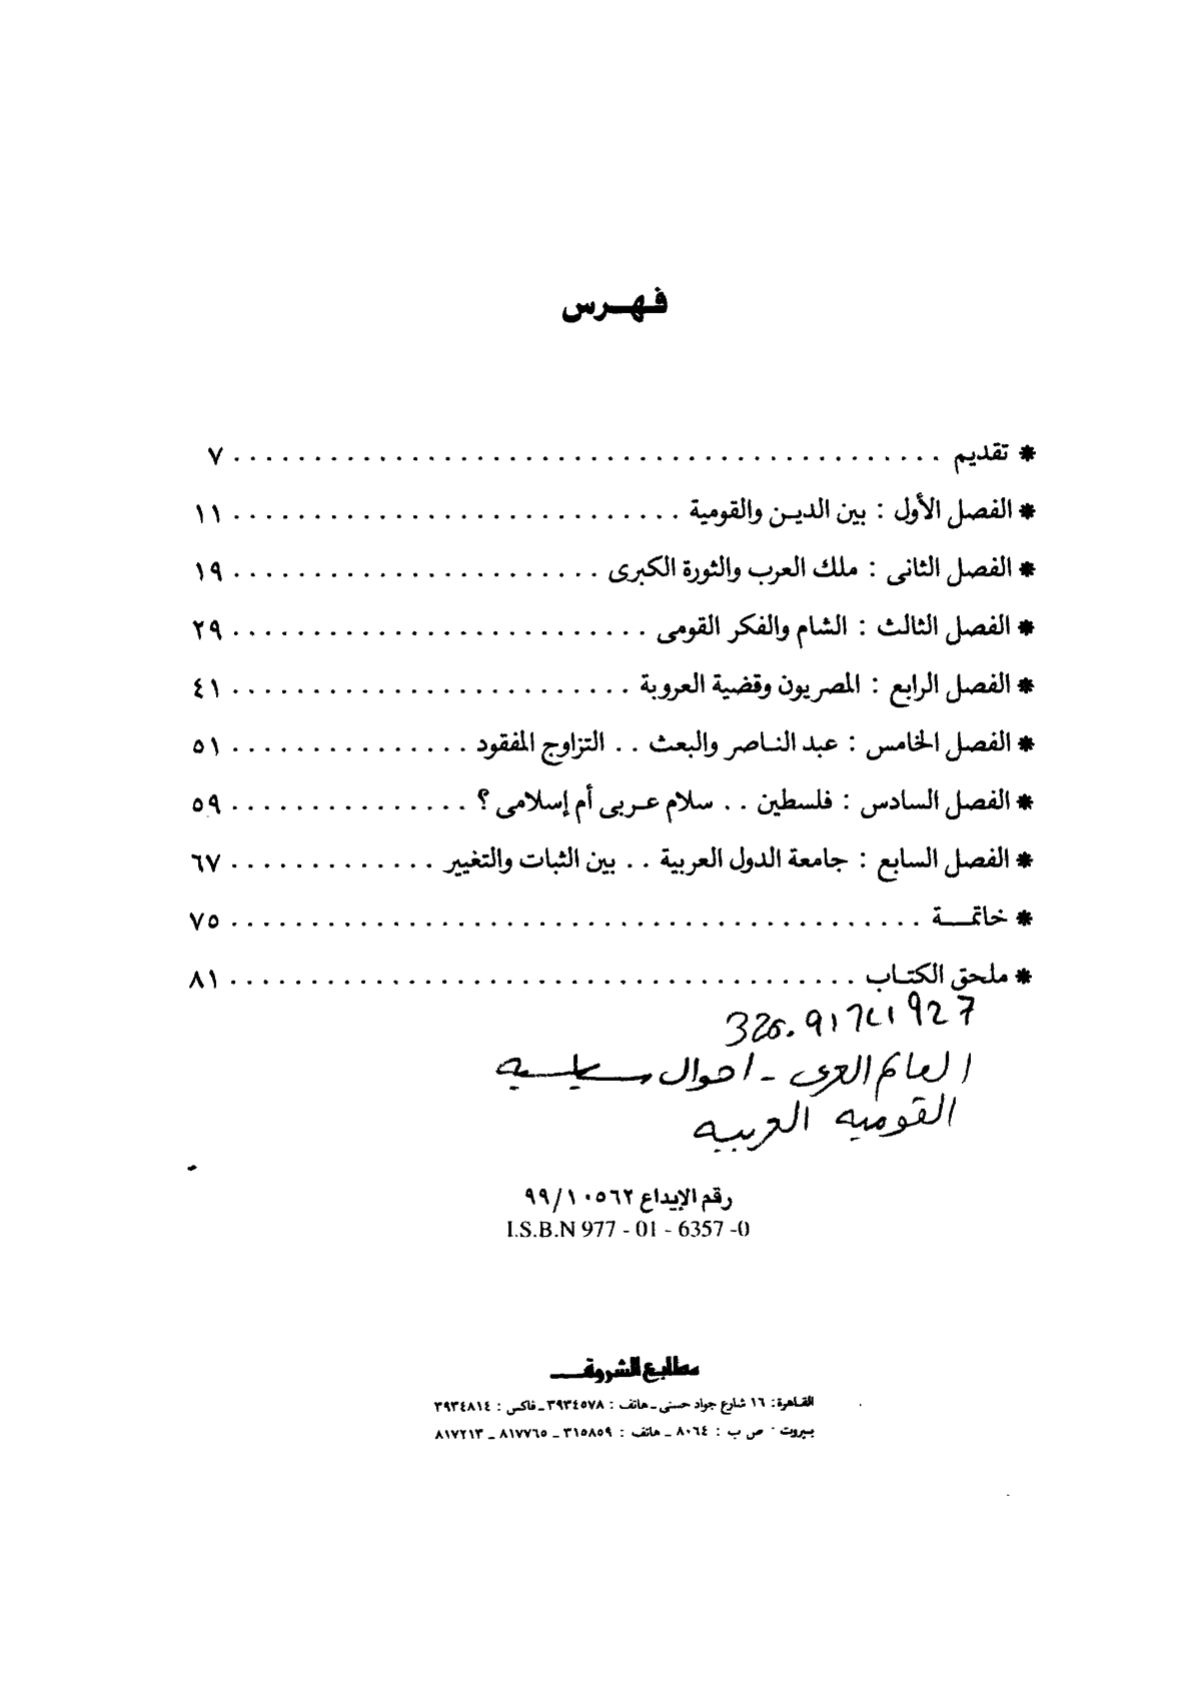 فهرس
* تقديم ........................................... ٧
* الفصل الأول : بين الدين والقومية ............................ ١١
* الفصل الثانى : ملك العرب والثورة الكبرى ....................... ١٩
* الفصل الثالث : الشام والفكر القومى .......................... ٢٩
* الفصل الرابع : المصريون وقضية العروبة ......................... ٤١
* الفصل الخامس : عبد الناصر والبعث .. التزاوج المفقود ............... ٥١
* الفصل السادس : فلسطين .. سلام عربى أم إسلامى ؟ ............... ٥٩
* الفصل السابع : جامعة الدول العربية .. بين الثبات والتغيير ............. ٦٧
* خاتمة ........................................... ٧٥
* ملحق الكتاب ....................................... ٨١
العالم العربى - احوال سياسيه
القوميه العربيه
رقم الإيداع ١٠٥٦٢/ ٩٩
I.S.B.N 977 - 01 - 6357 -0
مطابع الشروق
القاهرة: ١٦ شارع جواد حسنى ـ هاتف : ٣٩٣٤٥٧٨ ـ فاكس : ٣٩٣٤٨١٤
بيروت ص ب : ٨٠٦٤ ـ هاتف : ٣١٥٨٥٩ ـ ٨١٧٧٦٥ ـ ٨١٧٢١٣